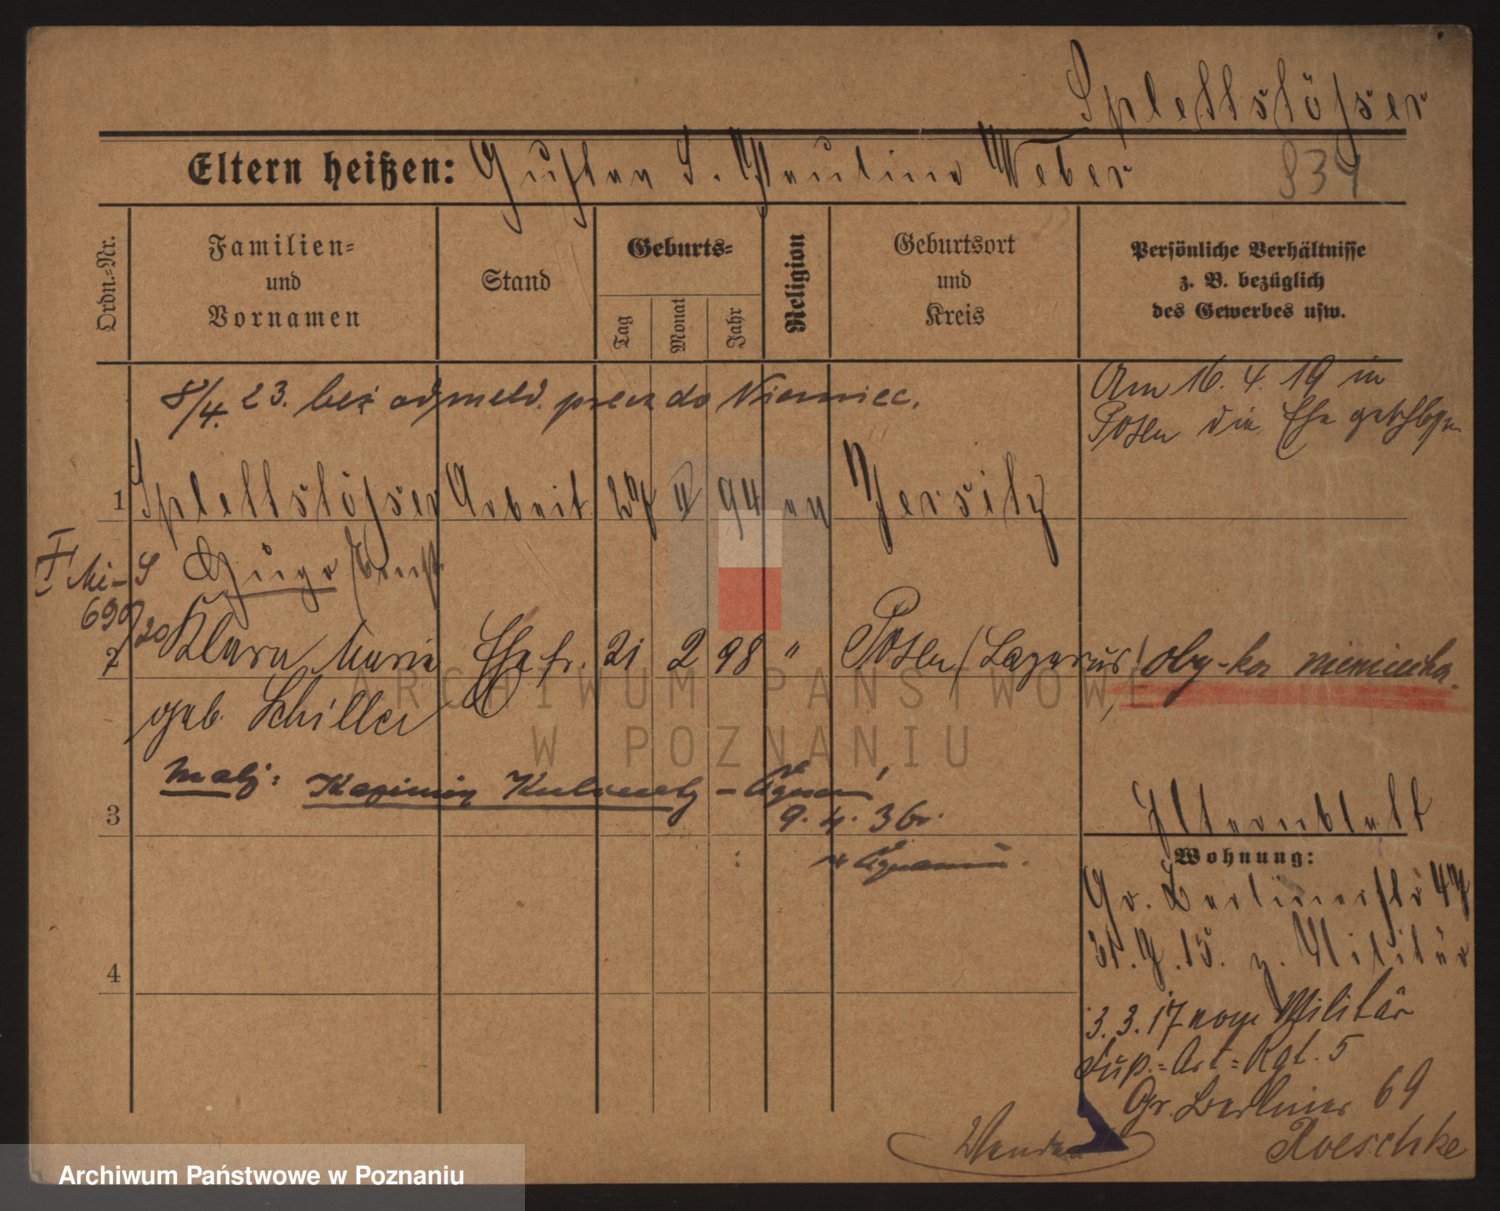 Splettstößer
Eltern heißen: Gustav S. Pauline Weber
834
Ordn.-Nr.
Familien-
und
Vornamen
Stand
Geburts-
Tag
Monat
Jahr
Religion
Geburtsort
und
Kreis
Persönliche Verhältnisse
z. B. bezüglich
des Gewerbes usw.
8/4. 23. bez odmeld. precz do Niemiec.
Am 16. 4. 19 in
Posen die Ehe geschlossen
1 Splettstößer Arbeit. 27 94 ev Jersitz
Hugo Ernst
690/20
2 Klara Maria Ehefr. 21 2 98 " Posen (Lazarus) oby-ka niemiecka.
geb. Schiller
Kazimierz
9. 4. 36.
3
Elternblatt
Wohnung:
Gr. Berlinerstr 47
z. Militär
4
3. 3. 17 vom Militär
Fuß.=Art=Rgt. 5
Gr. Berliner 69
Roeschke
Wenden
ARCHIWUM PAŃSTWOWE
W POZNANIU
Archiwum Państwowe w Poznaniu